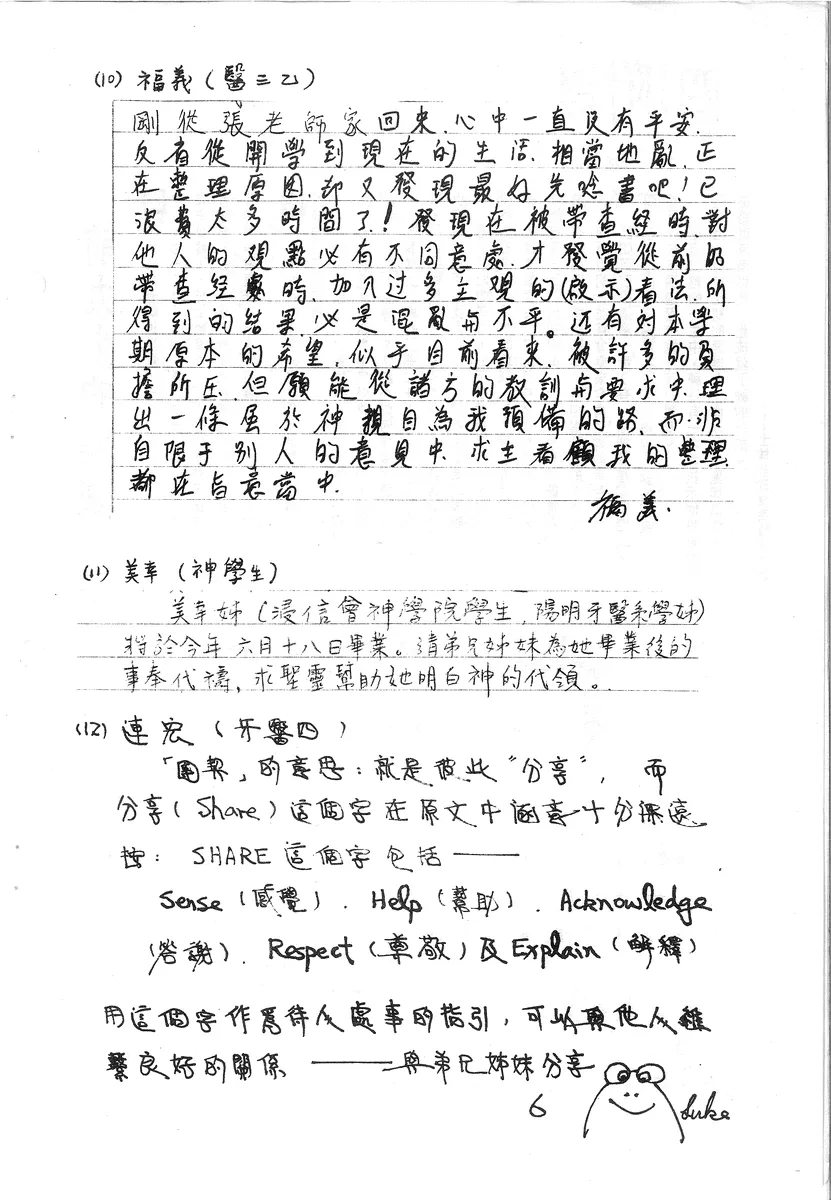 (10) 福義(醫三乙)
剛從張老師家回來,心中一直沒有平安.
反省從開學到現在的生活,相當地亂,正
在整理原因,却又發現最好先唸書吧!已
浪費太多時間了!發現在被帶查經時,對
他人的观點必有不同意處.才發覺從前的
帶查經時,加入过多主观的(啟示)看法,所
得到的結果,必是混亂与不平。还有对本學
期原本的希望,似乎目前看來,被許多的負
擔所压,但願能從諸方的教訓与要求中,理
出一條屬於神親自為我預備的路,而非
自限于別人的意見中.求主看顧我的整理,
都在旨意當中.
福義.
(11) 美幸(神學生)
美幸姊(浸信會神學院學生,陽明牙醫系學姊)
將於今年六月十八日畢業。請弟兄姊妹為她畢業後的
事奉代禱,求聖靈幫助她明白神的代領。
(12) 連宏(牙醫四)
「團契」的意思:就是彼此"分享",而
分享(Share)這個字在原文中涵意十分深遠
按: SHARE 這個字包括——
Sense(感覺). Help(幫助). Acknowledge
(答謝). Respect(尊敬)及Explain(解釋)
用這個字作為待人處事的指引,可以與他人維
繫良好的關係 ——— 與弟兄姊妹分享
6
Luke